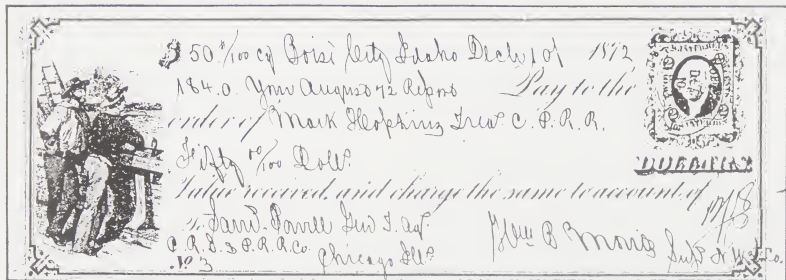 $ 50 00/100 Boisi City Idaho Dec 10 1872
1840 Your August 72 Report Pay to the
order of Mark Hopkins Trea. C. P. R. R.
Fifty 00/100 Doll
Value received, and charge the same to account of
To Powell Gen T. Agt
C. R. I. & P. R. R. Co. Chicago Ills Wm B Morris Supt
No 3